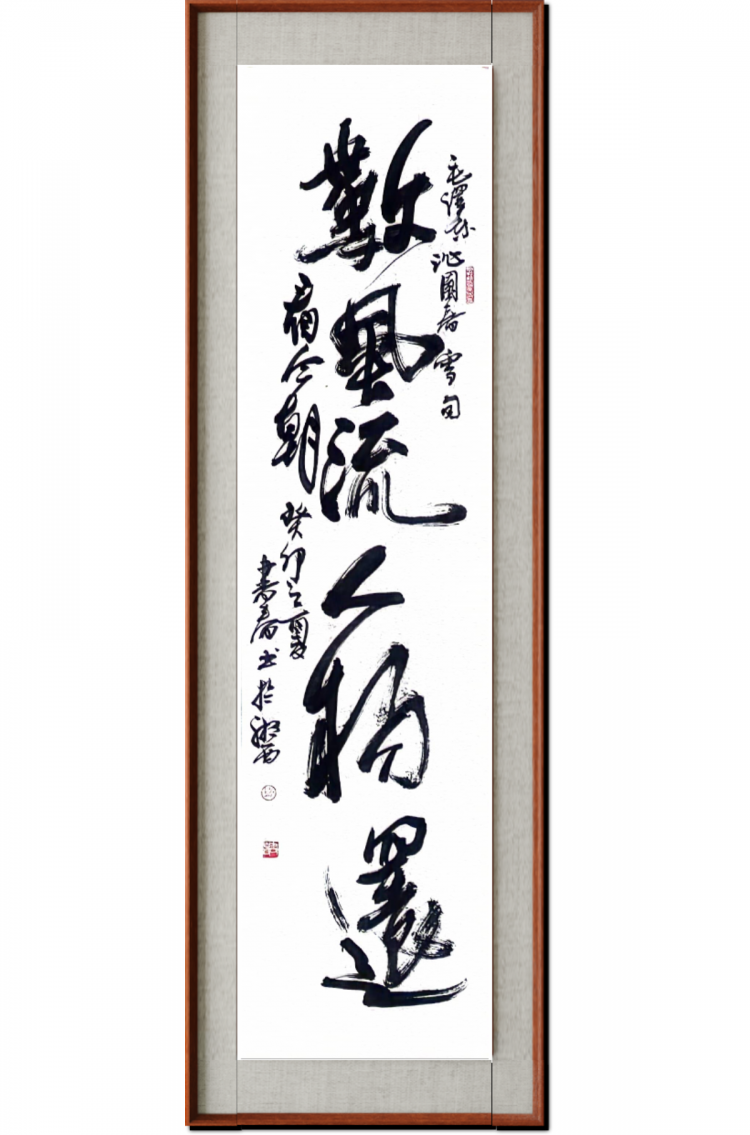 毛澤东沁園春雪句
數風流人物還
看今朝癸卯之夏
书於